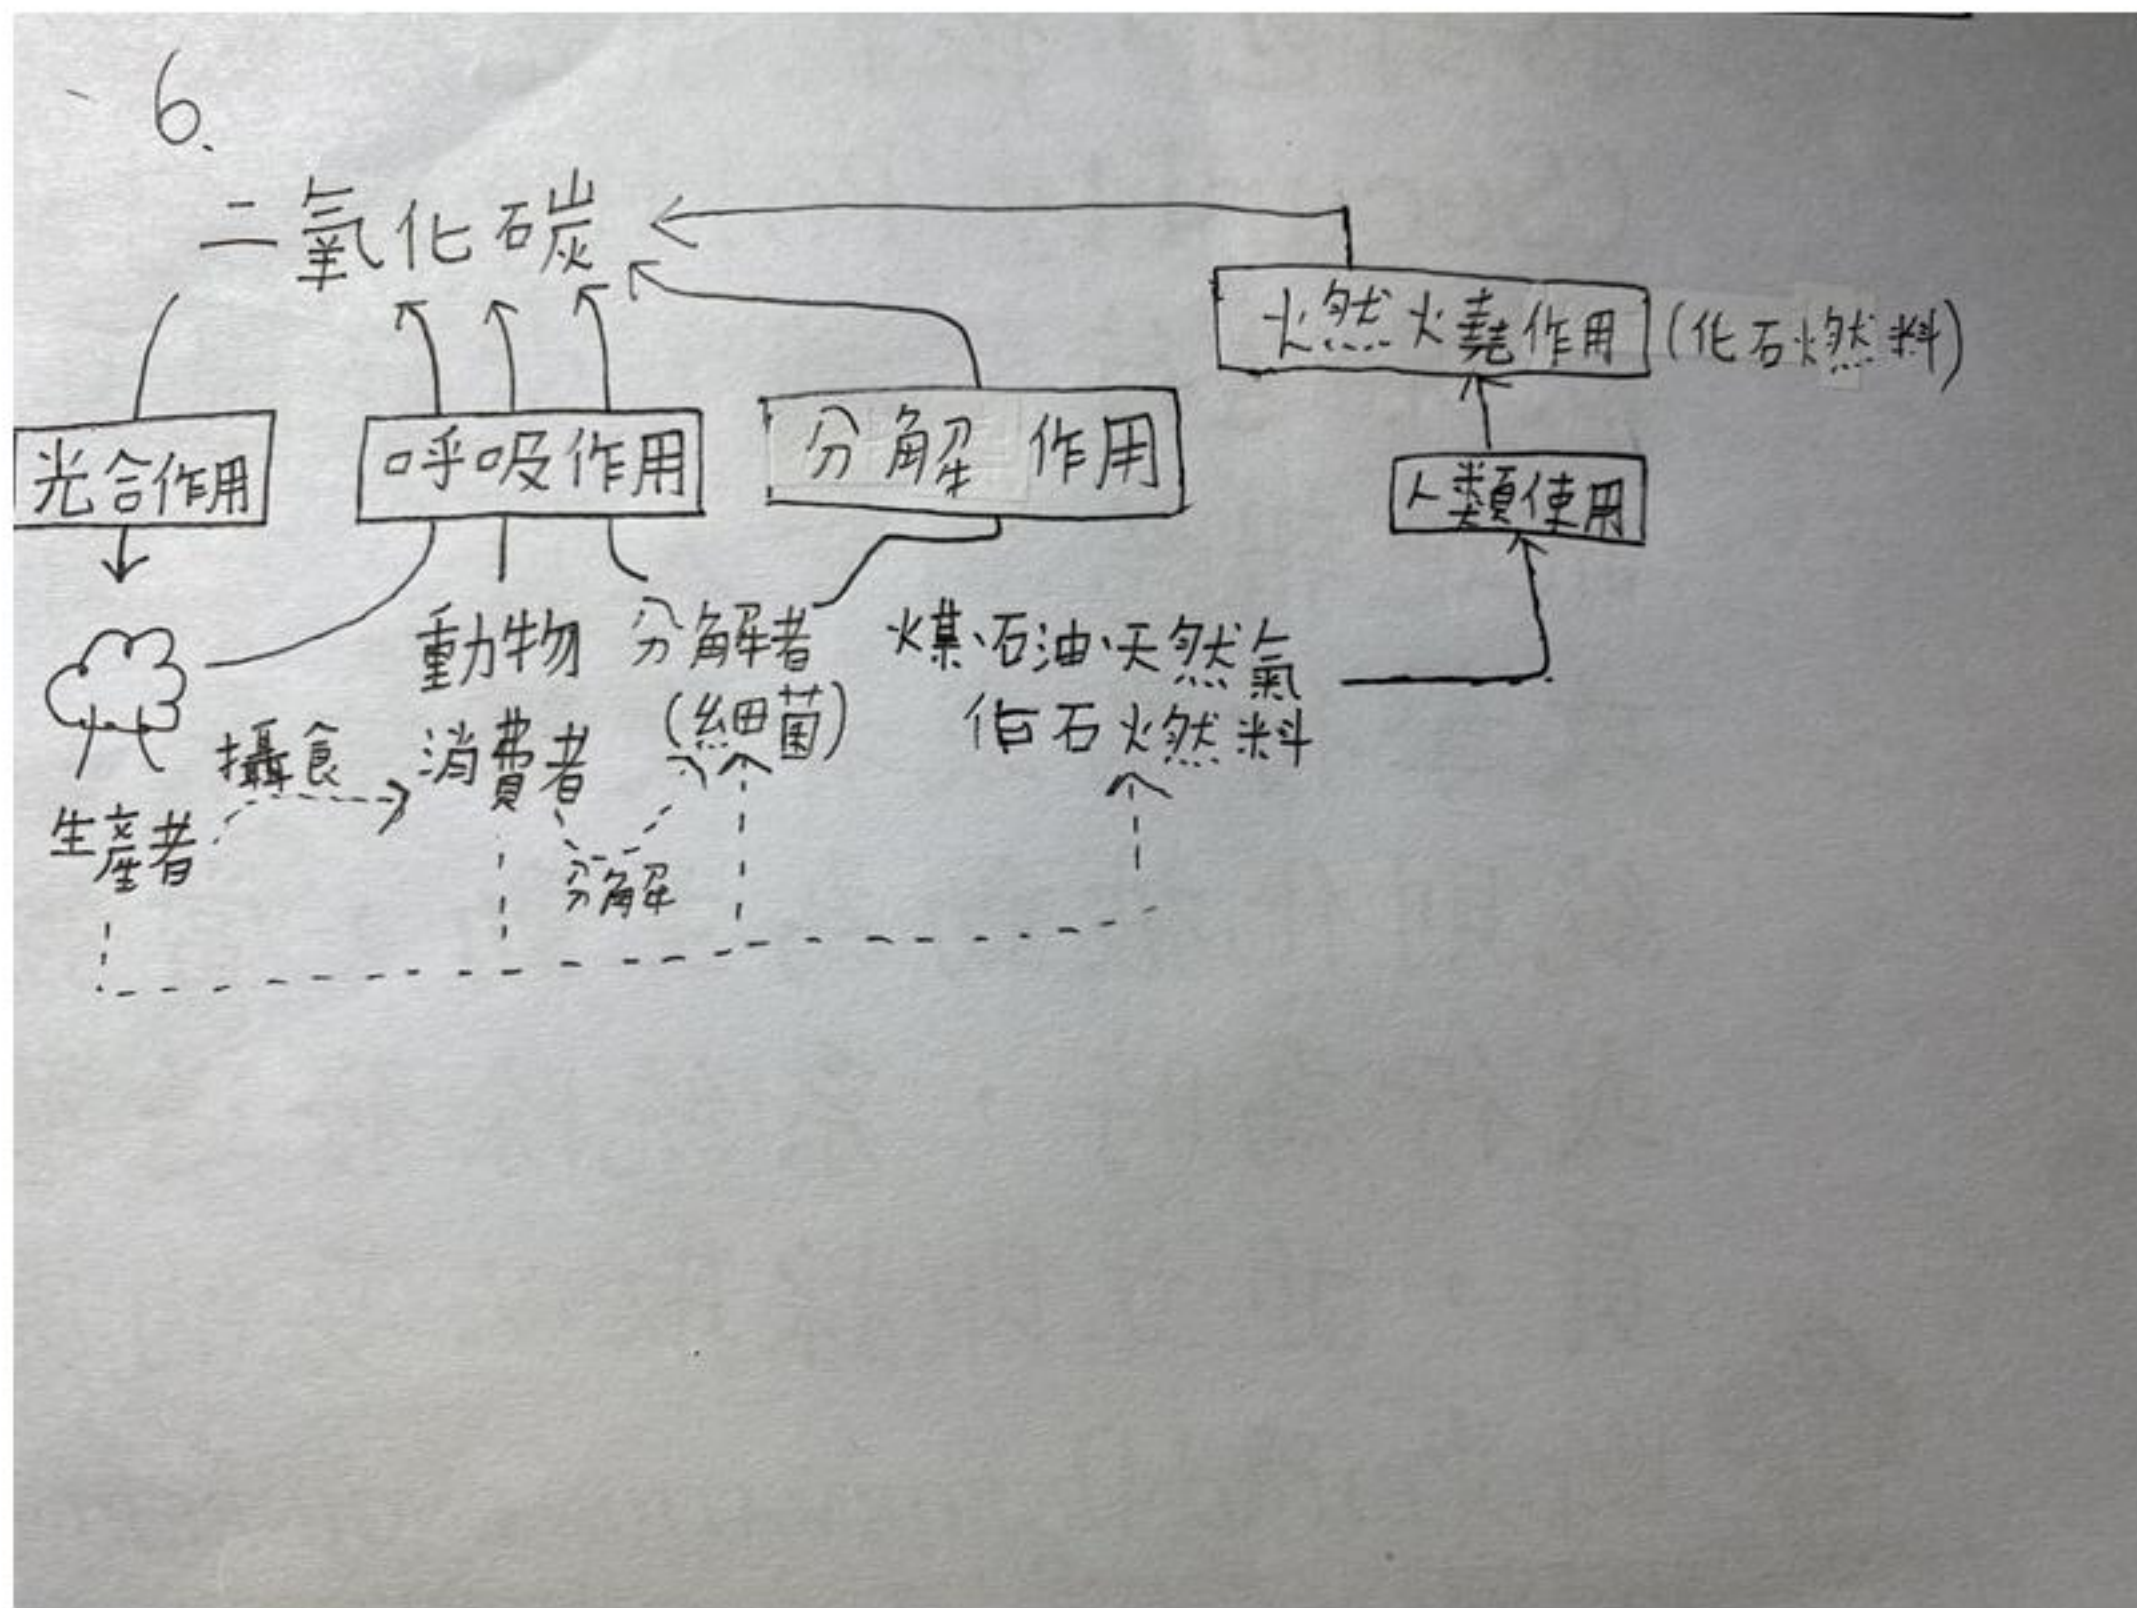 6.
二氧化碳
燃燒作用 (化石燃料)
光合作用
呼吸作用
分解作用
人類使用
動物
消費者
分解者
(細菌)
煤、石油、天然氣
化石燃料
攝食
生產者
分解